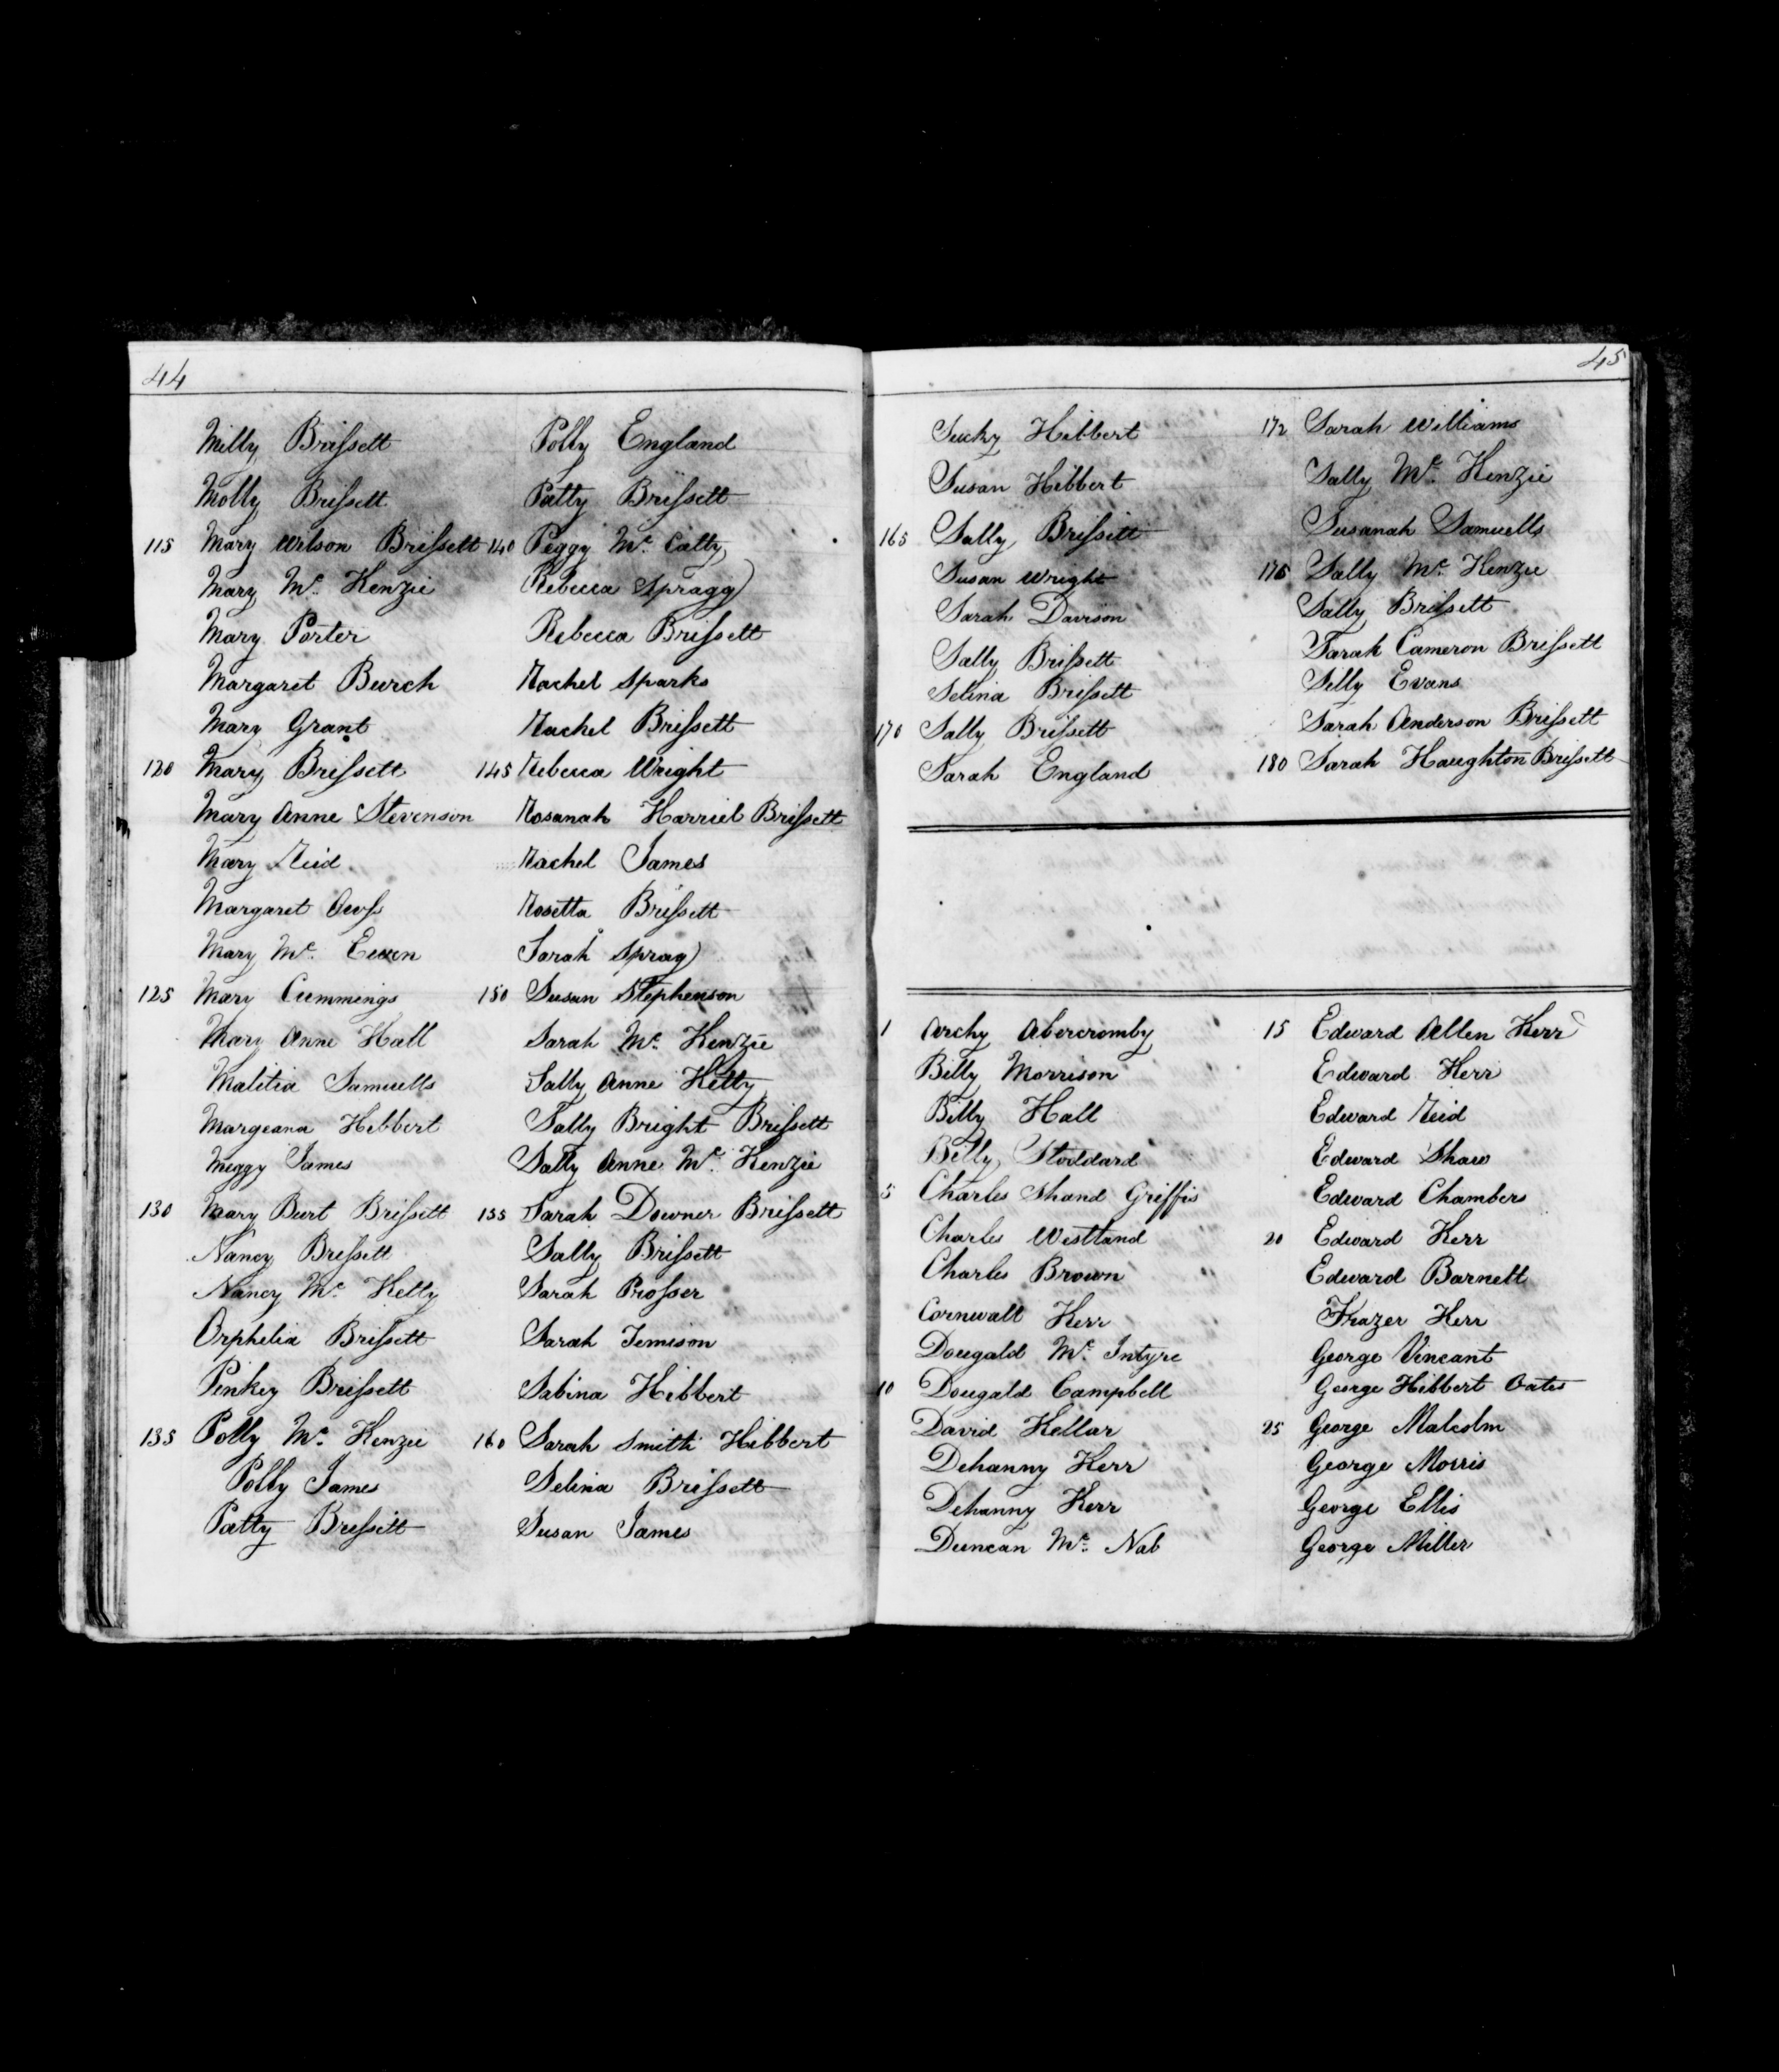 44
Milly Brifsett
Molly Brifsett
115 Mary Wilson Brifsett
Mary Mc. Kenzie
Mary Porter
Margaret Burch
Mary Grant
120 Mary Brifsett
Mary Anne Stevenson
Mary Reid
Margaret
Mary Mc. Ewen
125 Mary Cummings
Mary Anne Hall
Malitia Samuells
Margeana Hibbert
Meggy James
130 Mary Burt Brifsett
Nancy Brifsett
Nancy Mc. Kelly
Orphelia Brifsett
Pinkey Brifsett
135 Polly Mc. Kenzie
Polly James
Patty Brifsett
Polly England
Patty Brifsett
140 Peggy Mc. Catty
Rebecca Spragg
Rebecca Brifsett
Rachel Sparks
Rachel Brifsett
145 Rebecca Wright
Rosanah Harriel Brifsett
Rachel James
Rosetta Brifsett
Sarah Sprag
150 Susan Stephenson
Sarah Mc. Kenzie
Sally Anne Kelly
Sally Bright Brifsett
Sally Anne Mc. Kenzie
155 Sarah Downer Brifsett
Sally Brifsett
Sarah Profser
Sarah Jemison
Sabina Hibbert
160 Sarah Smith Hibbert
Selina Brifsett
Susan James
45
Sucky Hibbert
Susan Hibbert
165 Sally Brifsett
Susan Wright
Sarah Davison
Sally Brifsett
Selina Brifsett
170 Sally Brifsett
Sarah England
172 Sarah Williams
Sally Mc. Kenzie
Susanah Samuells
175 Sally Mc. Kenzie
Sally Brifsett
Sarah Cameron Brifsett
Silly Evans
Sarah Anderson Brifsett
180 Sarah Haughton Brifsett
1 Archy Abercromby
Billy Morrison
Billy Hall
Billy Stoddard
5 Charles Shand Griffis
Charles Westland
Charles Brown
Cornwall Kerr
Dougald Mc. Intyre
10 Dougald Campbell
David Kellar
Dehanny Kerr
Dehanny Kerr
Duncan Mc. Nab
15 Edward Allen Kerr
Edward Kerr
Edward Reid
Edward Shaw
Edward Chambers
20 Edward Kerr
Edward Barnett
Frazer Kerr
George Vincant
George Hibbert Oates
25 George Malcolm
George Morris
George Ellis
George Miller